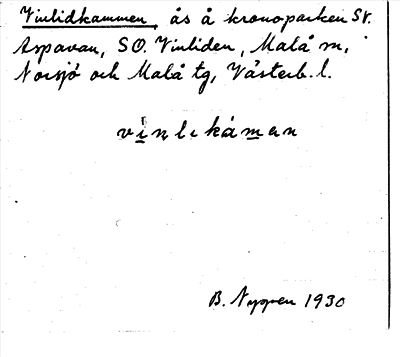 Vinlidkammen, ås å kronoparken Sv.
Aspavan, SO. Vinliden, Malå sn,
Norsjö och Malå tg, Västerb. l.
vi̱nlıkám̱en
B. Nyman 1930